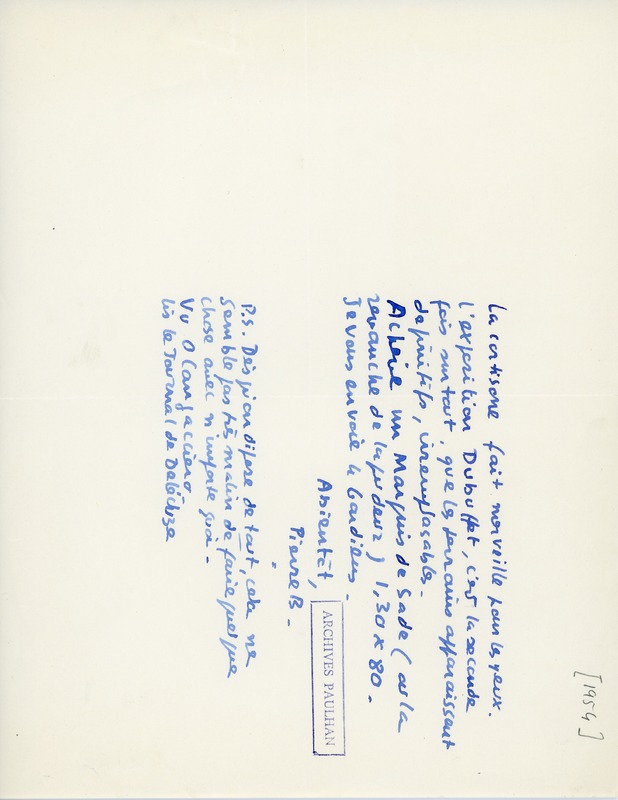 [1954]
La cortisone fait merveille pour les yeux.
l'exposition Dubuffet, c'est la seconde
fois surtout, que les terrains apparaissent
définitifs, irremplaçables.
Achevé un Marquis de Sade (ou la
revanche de la pudeur) 1,30 x 80.
Je vous envoie le Gardiens.
A bientôt,
Pierre B.
ARCHIVES PAULHAN
P.S. Dès qu'on dispose de tout, cela ne
semble pas très malin de faire quelque
chose avec n'importe quoi.
Vu O Cangaceiro
lis le Journal de Delécluze